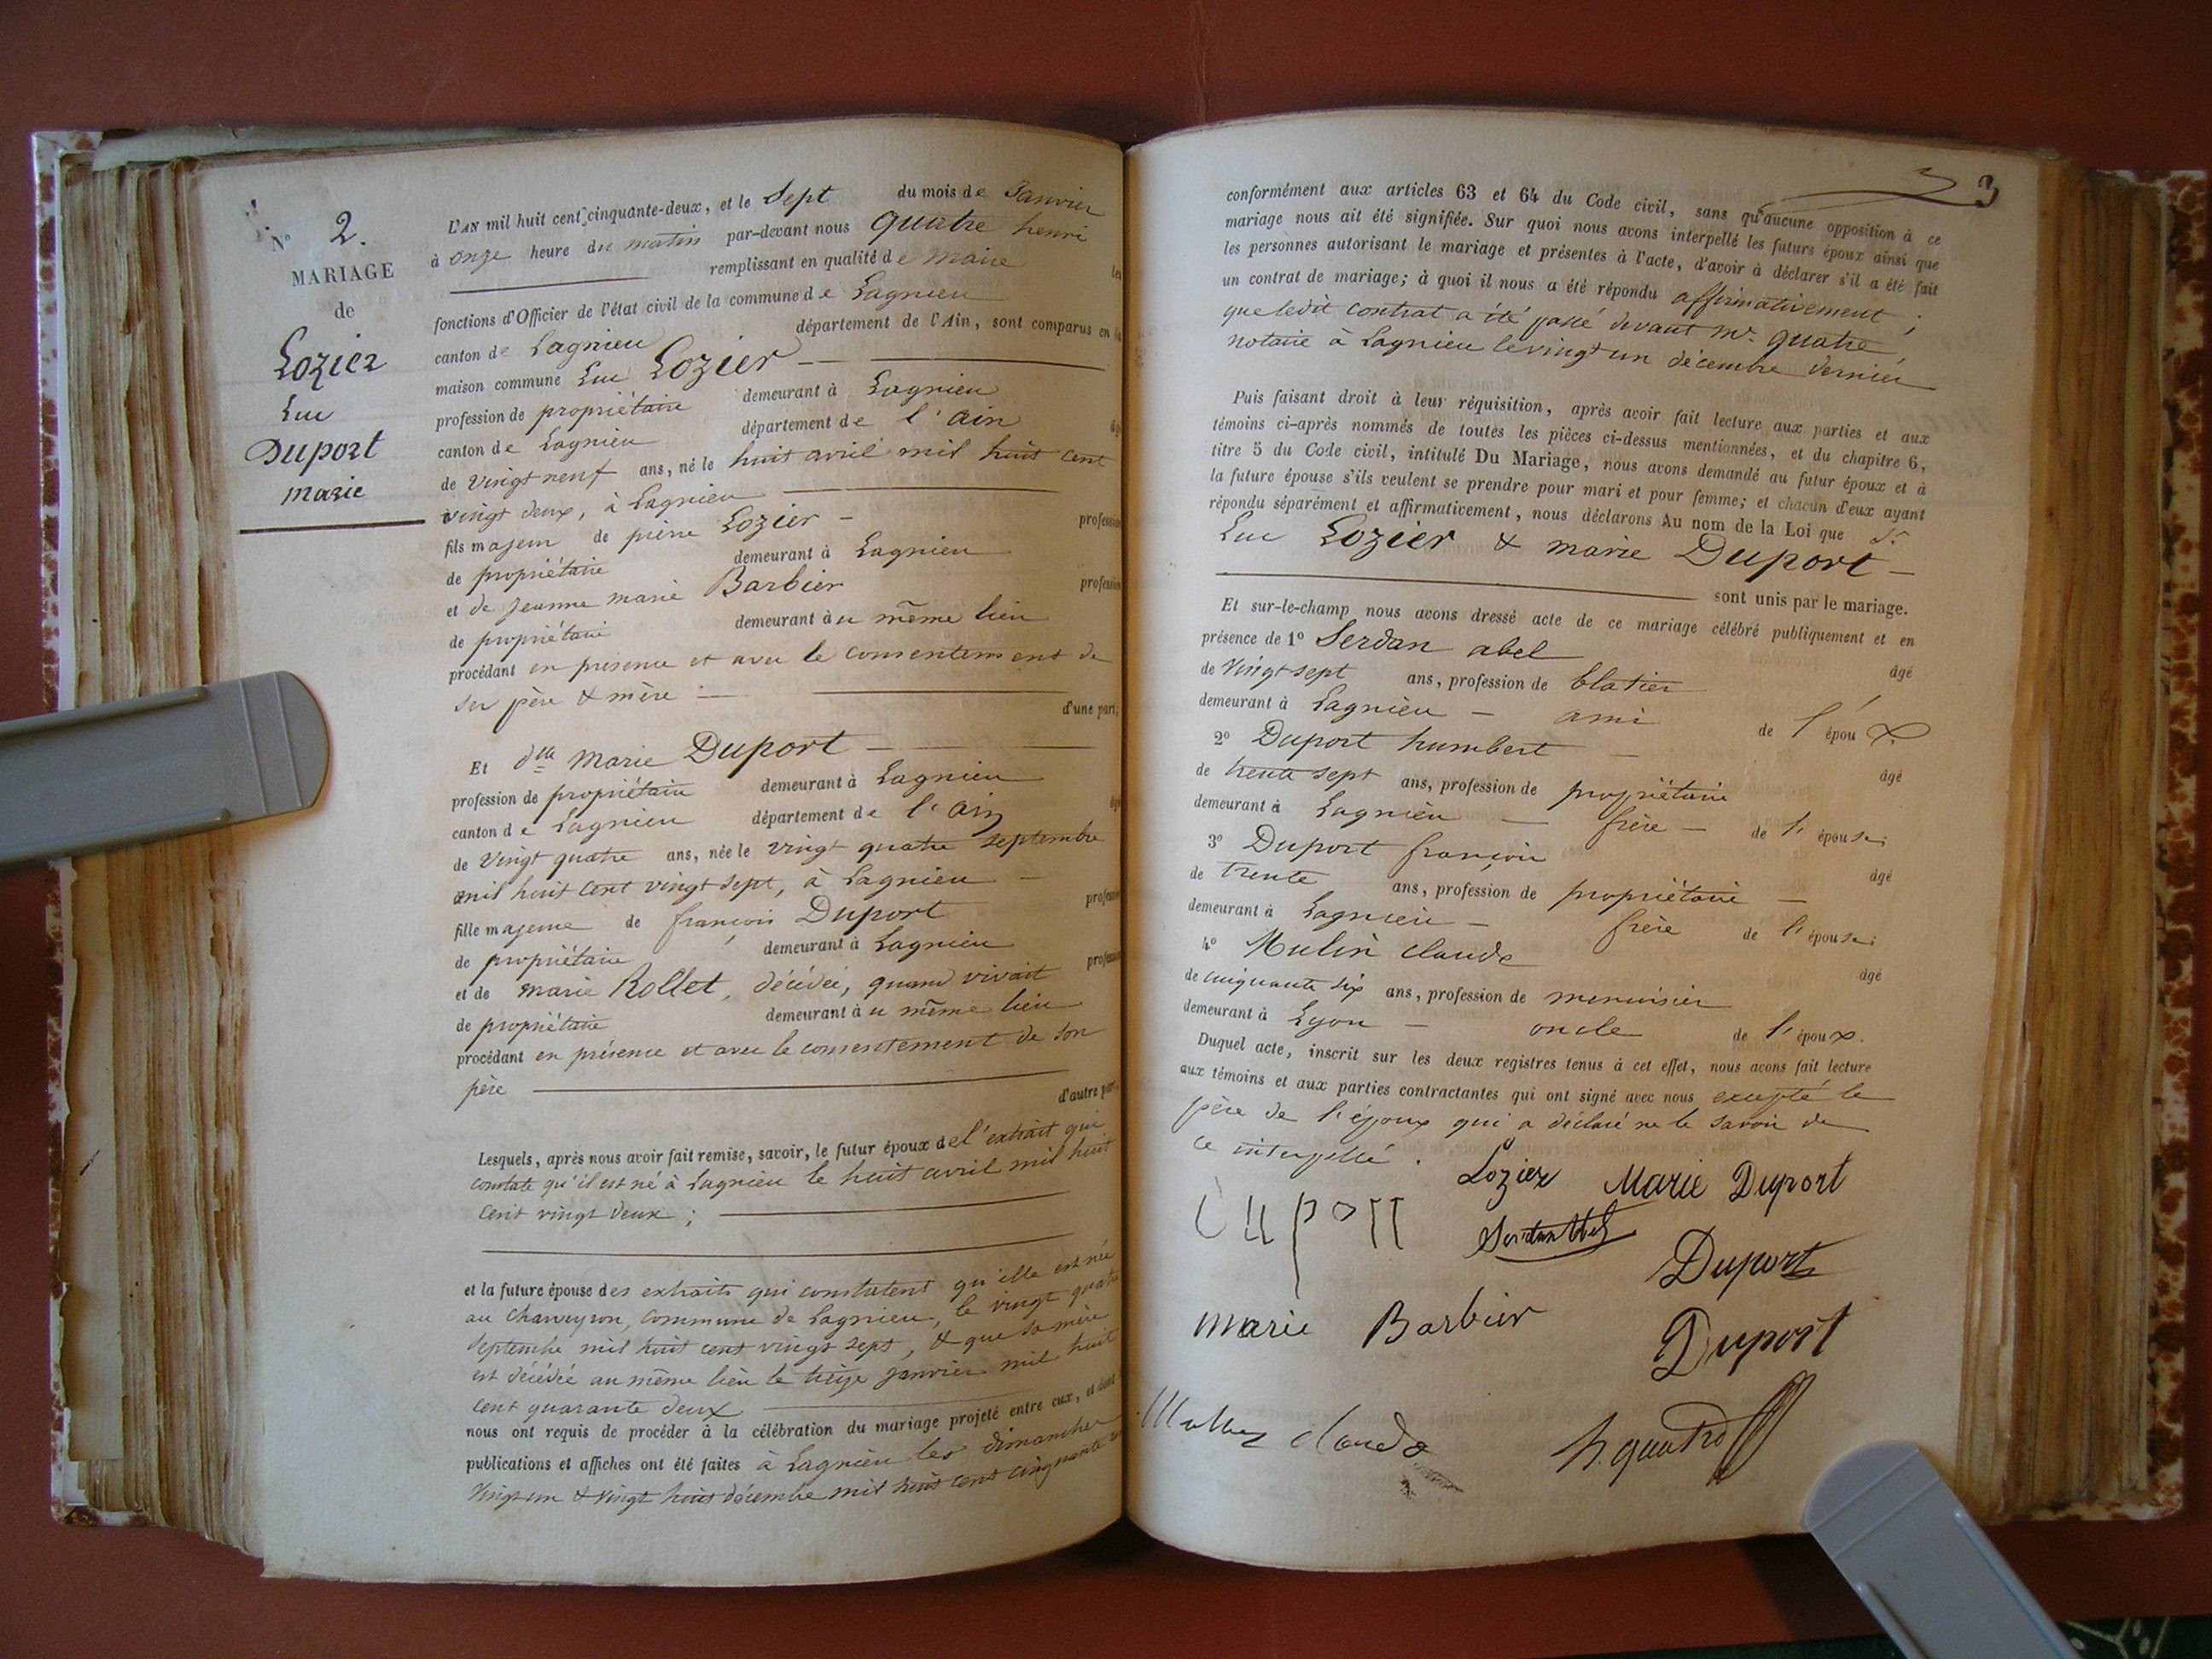 N° 2.
MARIAGE
de
Lozier
Luc
Duport
marie
L'AN mil huit cent cinquante-deux, et le Sept du mois de Janvier
à onze heure du matin par-devant nous quatre henri
remplissant en qualité de maire les
fonctions d'Officier de l'état civil de la commune de Lagnieu
canton de Lagnieu département de l'Ain, sont comparus en la
maison commune Luc Lozier
profession de propriétaire demeurant à Lagnieu
canton de Lagnieu département de l'ain âgé
de vingt neuf ans, né le huit avril mil huit cent
vingt deux, à Lagnieu
fils majeur de pierre Lozier profession
de propriétaire demeurant à Lagnieu
et de jeanne marie Barbier profession
de propriétaire demeurant à u même lieu
procédant en présence et avec le consentement de
ses père & mère
d'une part;
Et dlle Marie Duport
profession de propriétaire demeurant à Lagnieu
canton de Lagnieu département de l'ain âgé
de vingt quatre ans, née le vingt quatre septembre
mil huit cent vingt sept, à Lagnieu
fille majeure de françois Duport profession
de propriétaire demeurant à Lagnieu
et de marie Rollet, décédée, quand vivait profession
de propriétaire demeurant à u même lieu
procédant en présence et avec le consentement de son
père
d'autre part.
Lesquels, après nous avoir fait remise, savoir, le futur époux de l'extrait qui
constate qu'il est né à Lagnieu le huit avril mil huit
cent vingt deux;
et la future épouse des extraits qui constatent qu'elle est née
au Charveyron, commune de Lagnieu, le vingt quatre
septembre mil huit cent vingt sept, & que sa mère
est décédée au même lieu le treize janvier mil huit
cent quarante deux
nous ont requis de procéder à la célébration du mariage projeté entre eux, et dont
publications et affiches ont été faites à Lagnieu les dimanches
vingt un & vingt huit décembre mil huit cent cinquante un
3
conformément aux articles 63 et 64 du Code civil, sans qu'aucune opposition à ce
mariage nous ait été signifiée. Sur quoi nous avons interpellé les futurs époux ainsi que
les personnes autorisant le mariage et présentes à l'acte, d'avoir à déclarer s'il a été fait
un contrat de mariage; à quoi il nous a été répondu affirmativement;
que ledit contrat a été passé devant Me quatre,
notaire à Lagnieu le vingt un décembre dernier
Puis faisant droit à leur réquisition, après avoir fait lecture aux parties et aux
témoins ci-après nommés de toutes les pièces ci-dessus mentionnées, et du chapitre 6,
titre 5 du Code civil, intitulé Du Mariage, nous avons demandé au futur époux et à
la future épouse s'ils veulent se prendre pour mari et pour femme; et chacun d'eux ayant
répondu séparément et affirmativement, nous déclarons Au nom de la Loi que
Luc Lozier & marie Duport
sont unis par le mariage.
Et sur-le-champ nous avons dressé acte de ce mariage célébré publiquement et en
présence de 1° Serdan abel âgé
de vingt sept ans, profession de blatier
demeurant à Lagnieu ami de l'époux
2° Duport humbert âgé
de trente sept ans, profession de propriétaire
demeurant à Lagnieu frère de l'épouse;
3° Duport françois âgé
de trente ans, profession de propriétaire
demeurant à Lagnieu frère de l'épouse;
4° Mulin claude âgé
de cinquante six ans, profession de menuisier
demeurant à Lyon oncle de l'époux.
Duquel acte, inscrit sur les deux registres tenus à cet effet, nous avons fait lecture
aux témoins et aux parties contractantes qui ont signé avec nous excepté le
père de l'époux qui a déclaré ne le savoir de
ce interpellé.
Lozier Marie Duport
Duport
Duport
marie Barbier
Duport
claude h. quatre